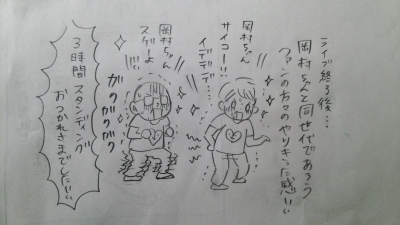 ライブ終了後…
岡村ちゃんと同世代であろう
ファンの方々のやりきった感いい
岡村ちゃん
サイコー!!
イデデデ…
岡村ちゃん
スゲーよ
ガクガクガク
3時間スタンディング
おつかれさまでしたいい